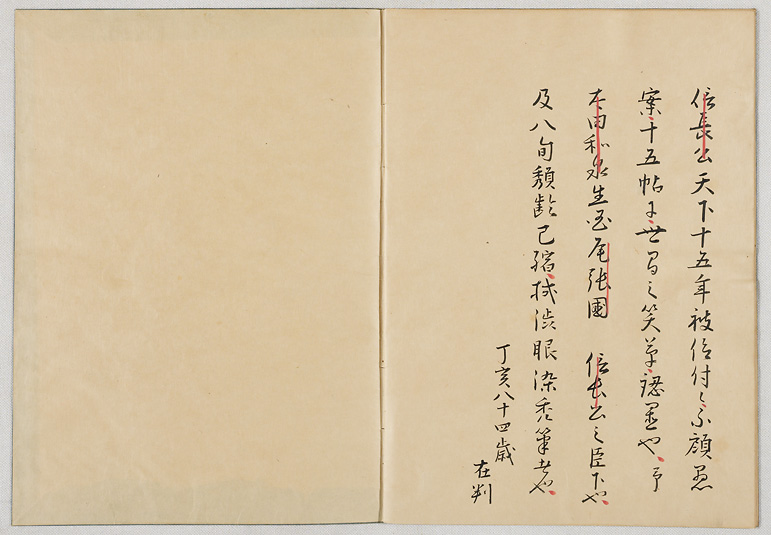 信長公天下十五年被仰付候不顧愚
案十五帖に世間之笑草認置也予
太田和泉生国尾張國 信長公之臣下也
及八旬頽齢已縮拭渋眼染禿筆者也
丁亥八十四歳
在判